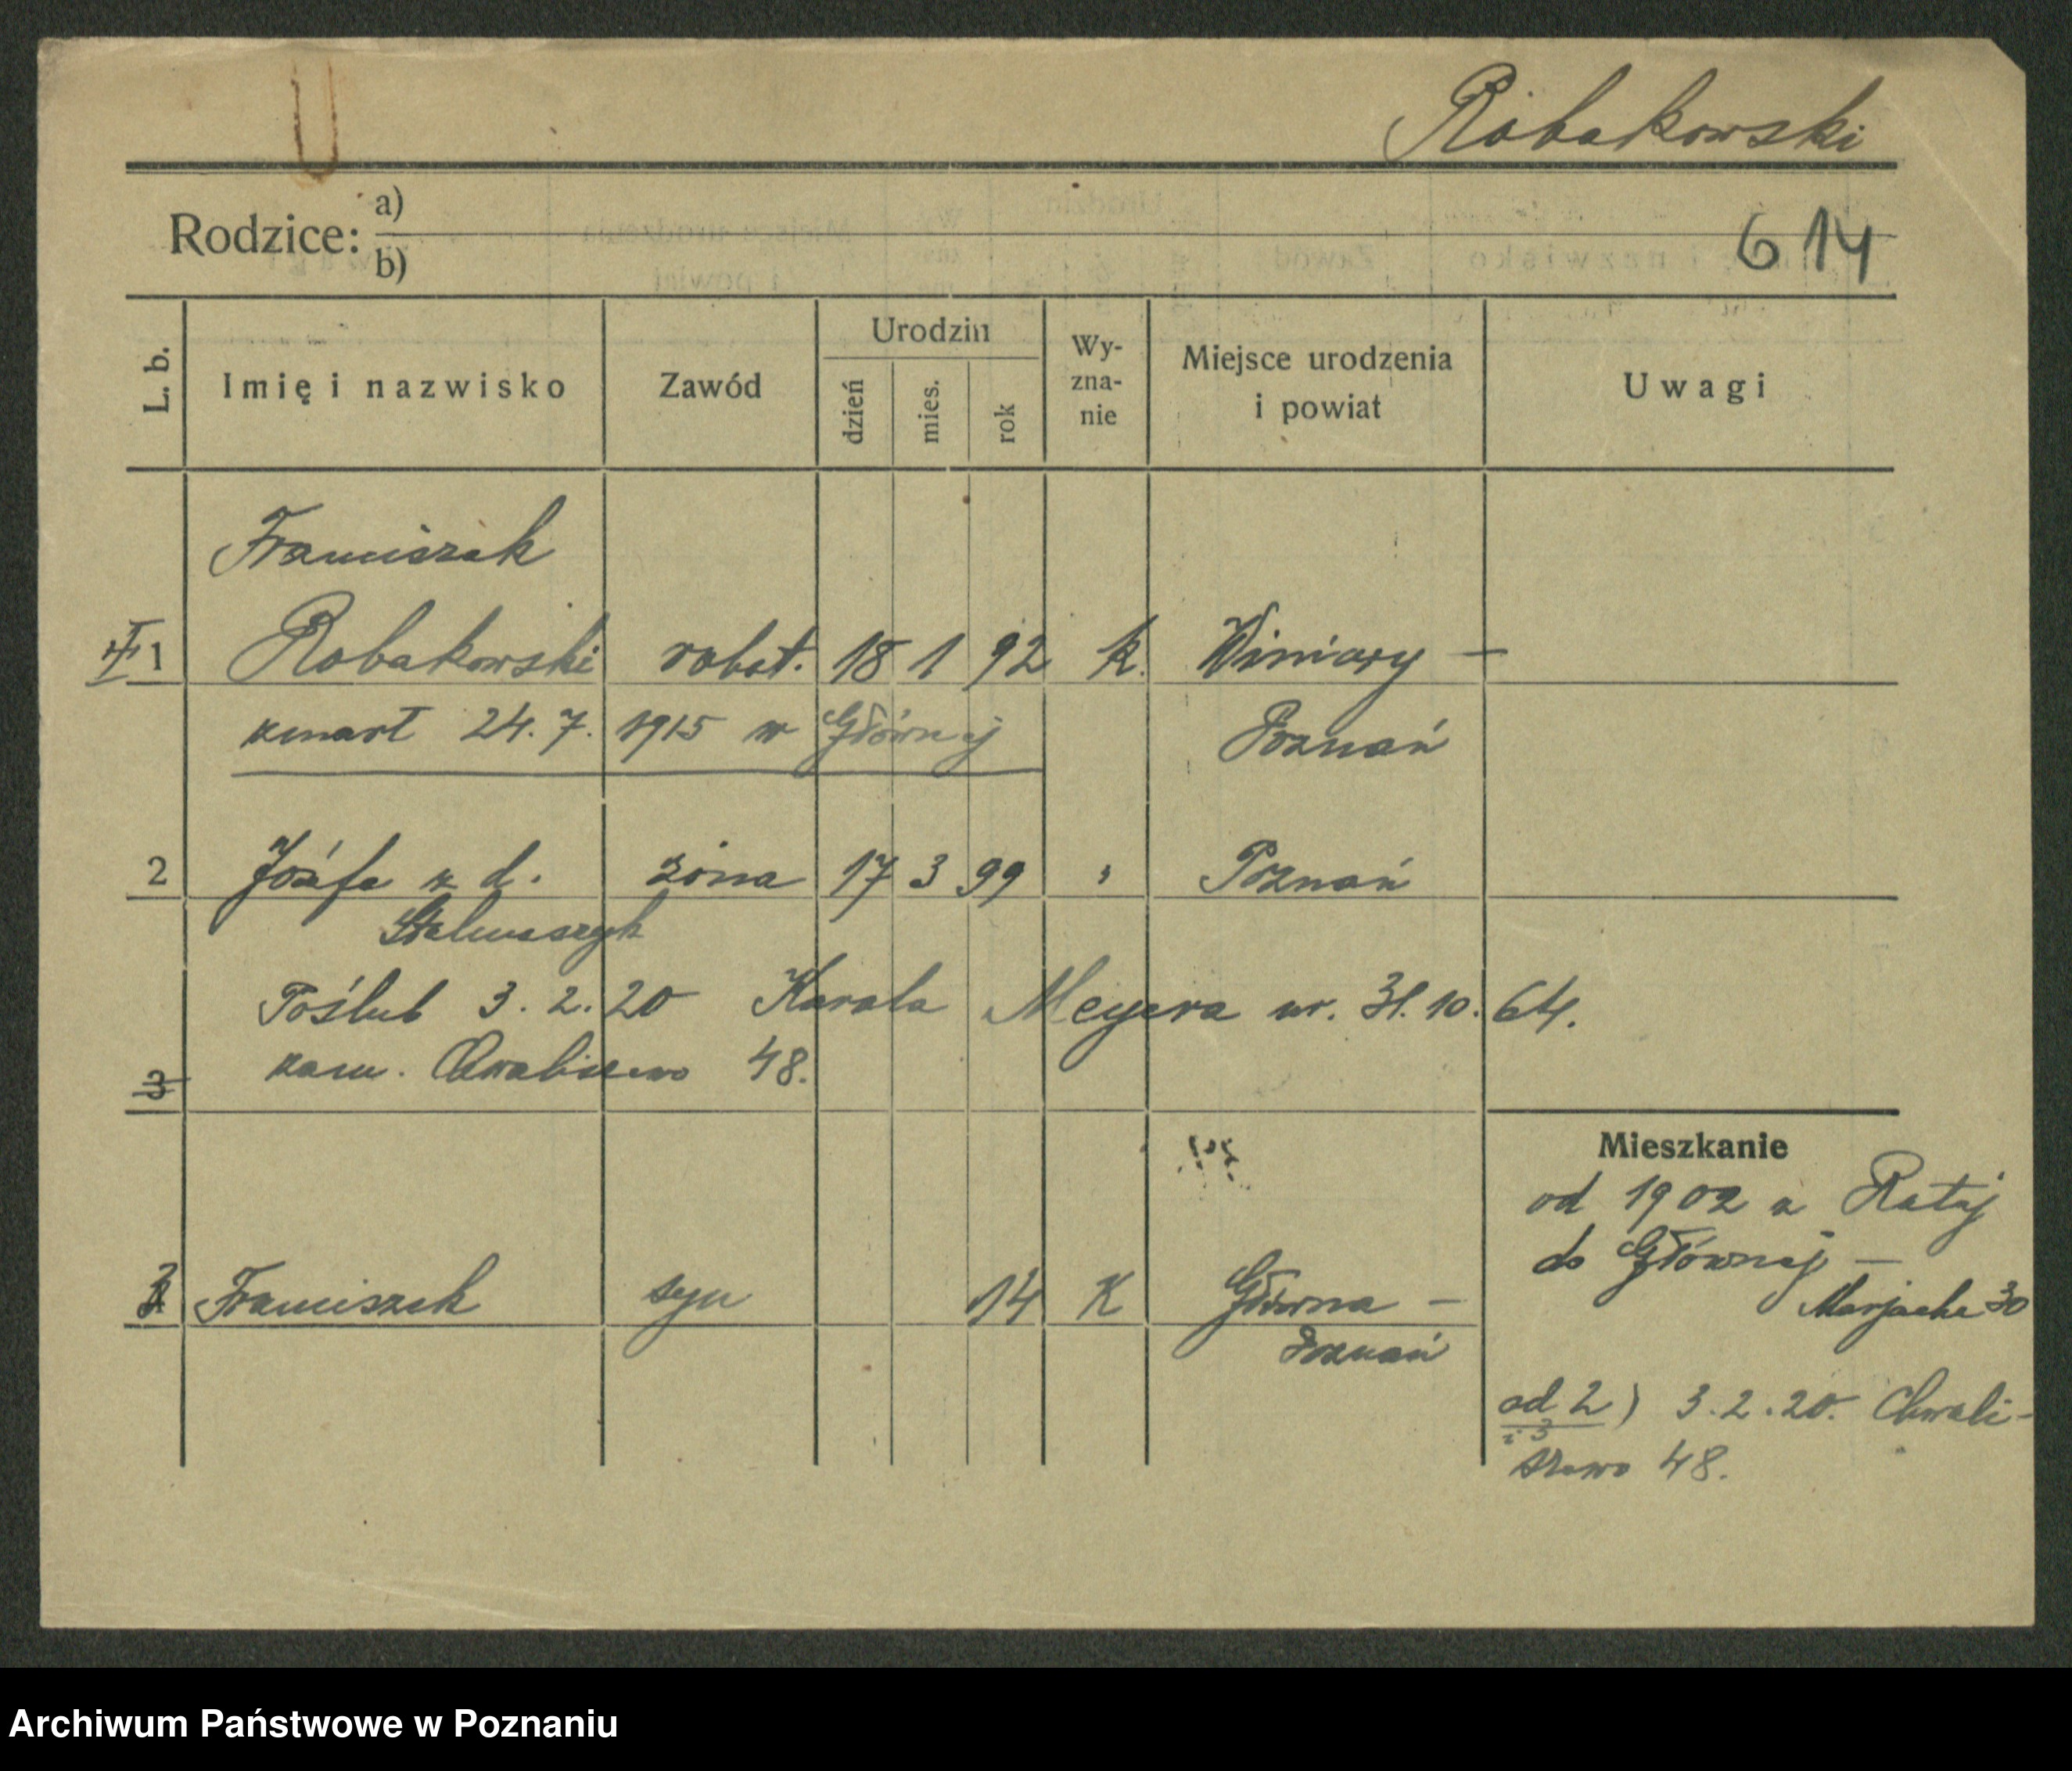 Robakowski
Rodzice: a)
b)
614
L. b. Imię i nazwisko Zawód Urodzin dzień mies. rok Wy-zna-nie Miejsce urodzenia i powiat Uwagi
Franciszek
1 Robakowski robot. 18 1 92 k. Winiary —
zmart 24. 7. 1915 w Głównej Poznań
2 Józefa z d. żona 17 3 99 " Poznań
Poślub 3. 2. 20 Karola Meyera ur. 31. 10. 64.
3 zam. Chwaliszewo 48.
Mieszkanie
od 1902 z Rataj
do Głównej —
Marjacka 30
3 Franciszek syn 14 K Główna —
Poznań
ad 2) 3. 2. 20. Chwali-
i 3
szewo 48.
Archiwum Państwowe w Poznaniu